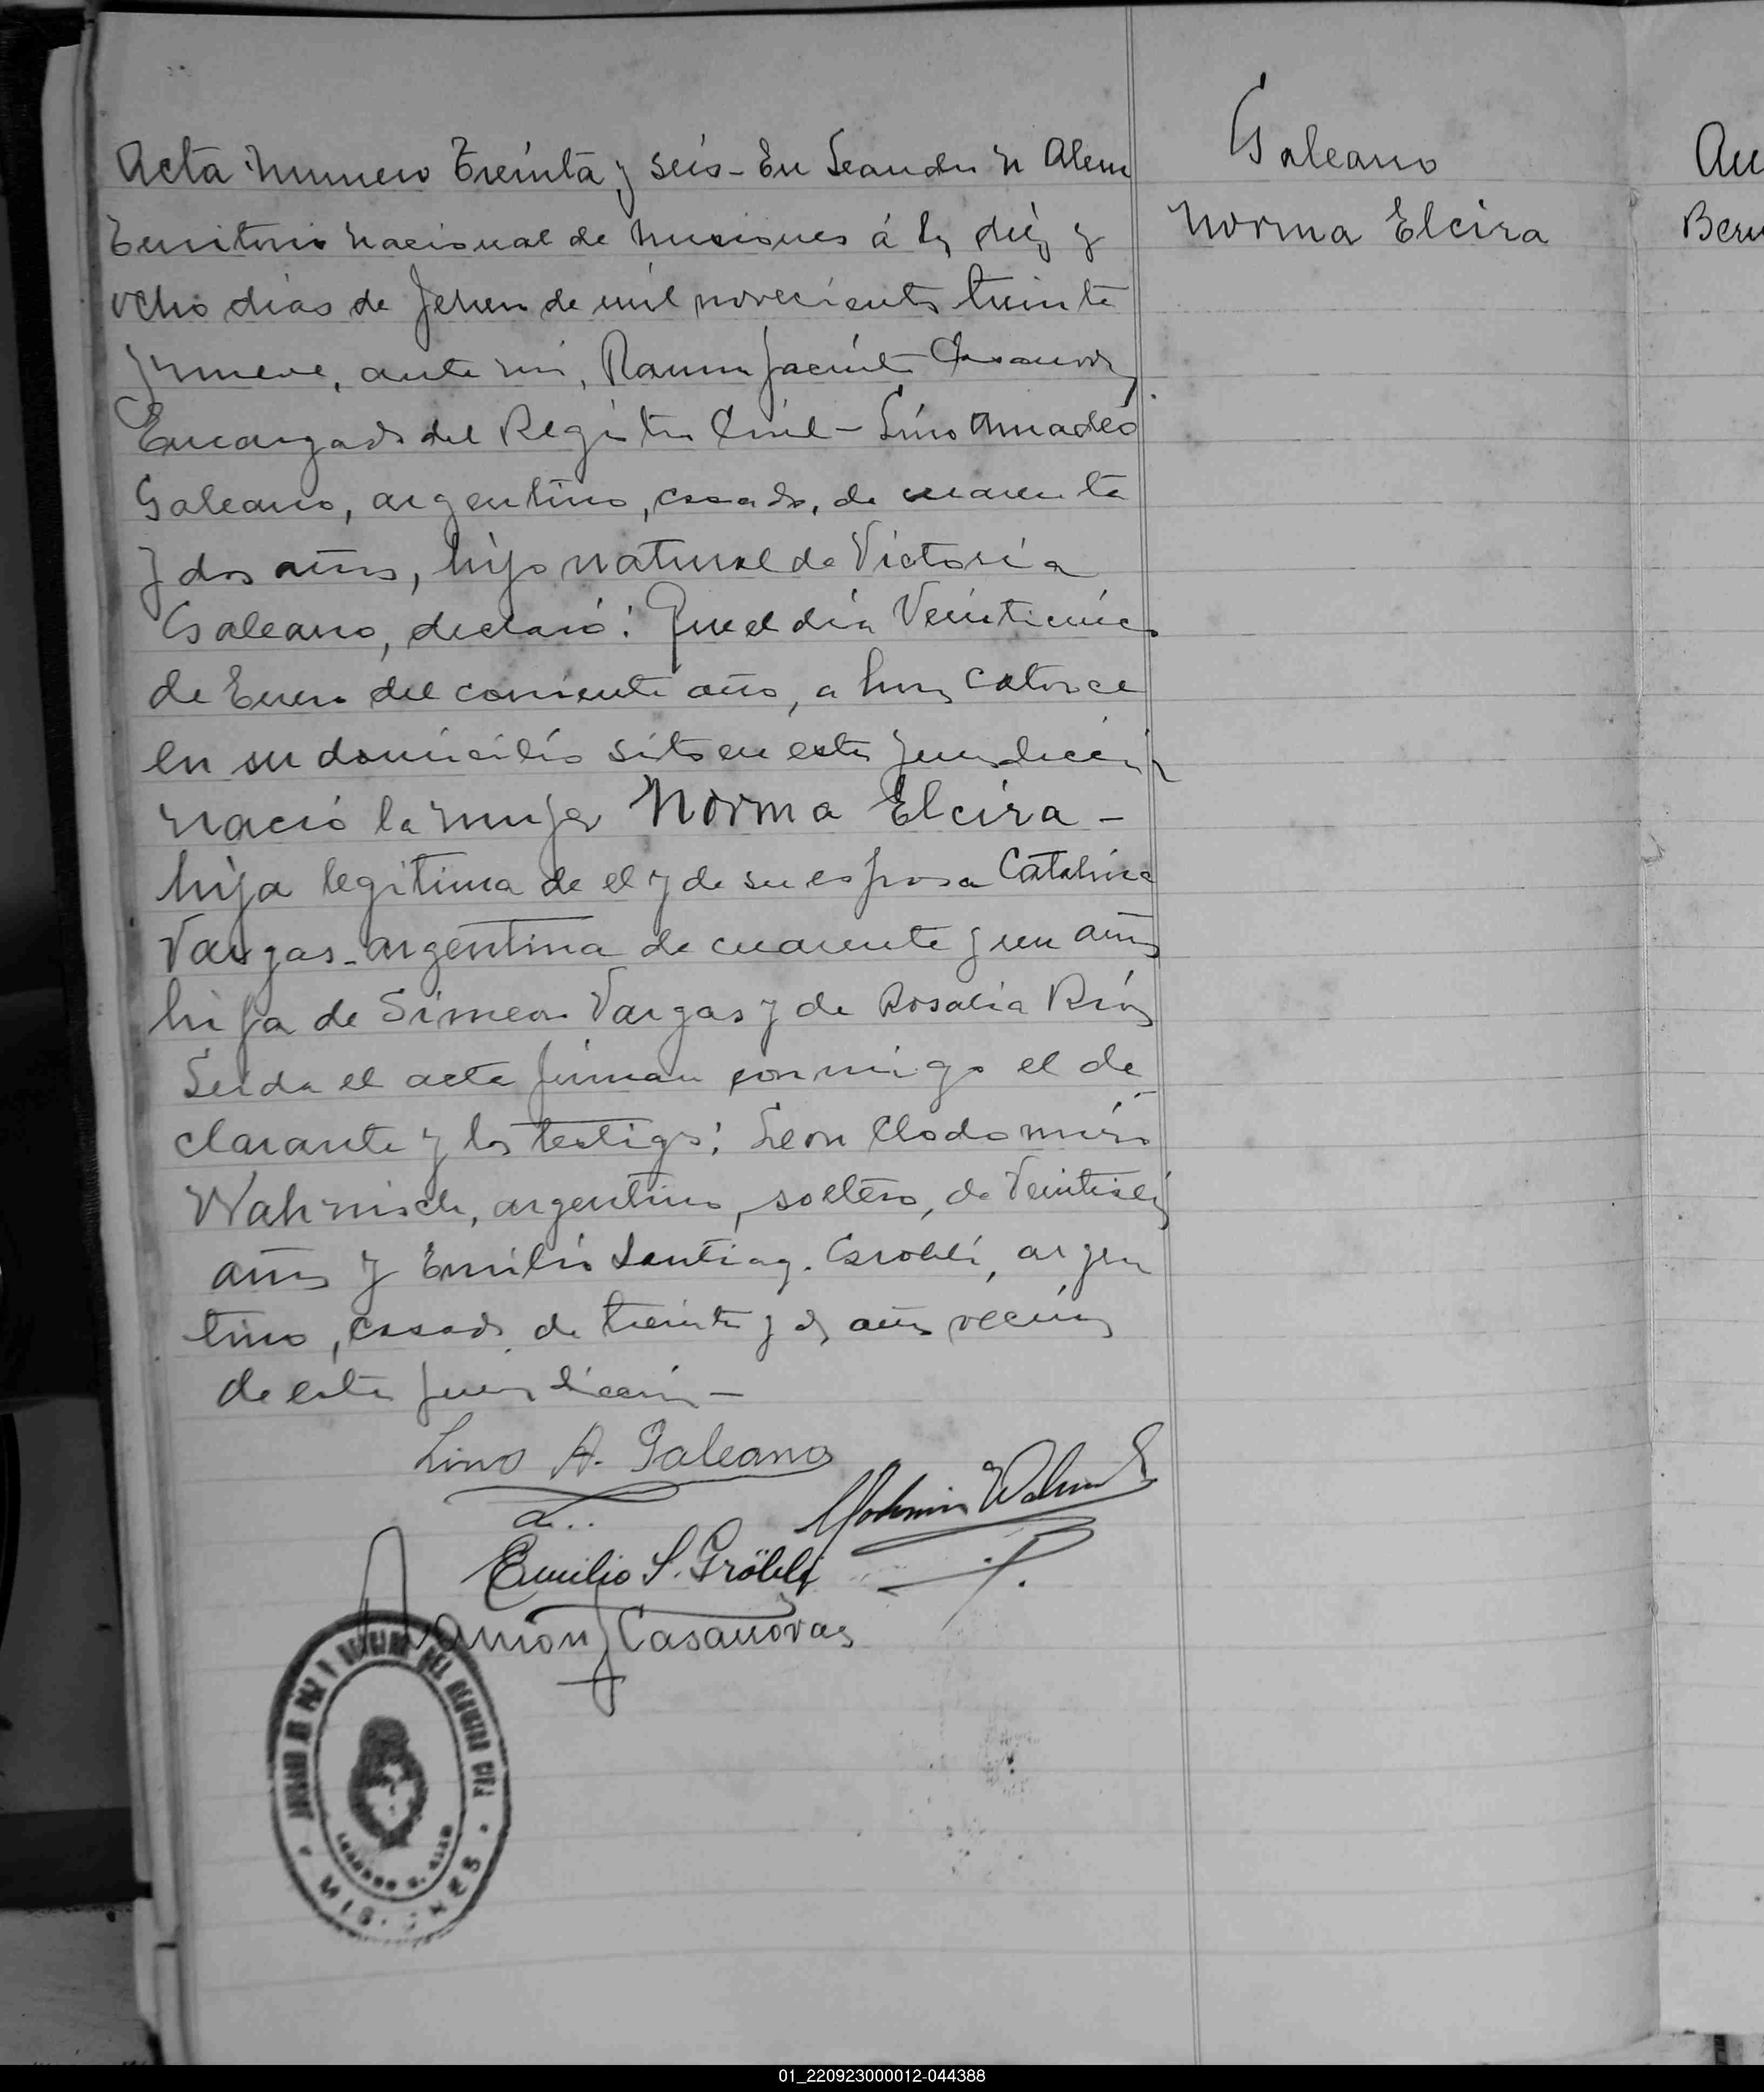 Acta Numero Treinta y seis - En Leandro N Alem
Territorio Nacional de Misiones á los diez y
ocho dias de Febrero de mil novecientos treinta
y nueve, ante mi, Ramon Jacinto Casanovas
Encargado del Registro Civil - Lino Amadeo
Galeano, argentino, casado, de cuarenta
y dos años, hijo natural de Victoria
Galeano, declaró: Que el dia Veinticinco
de Enero del corriente año, a horas catorce
en su domicilio sito en esta jurisdiccion
nació la mujer Norma Elcira -
hija legitima de el y de su esposa Catalina
Vargas - argentina de cuarenta y un años
hija de Simeon Vargas y de Rosalia Rios
Leida el acta firman conmigo el de
clarante y los testigos: Leon Clodomiro
Wahnisch, argentino, soltero, de Veintiseis
años y Emilio Santiago Grobli, argen
tino, casado de treinta y dos años vecinos
de esta jurisdiccion -
Lino A. Galeano
Emilio S. Gröbli
Ramon J Casanovas
JUZGADO DE PAZ Y OFICINA DEL REGISTRO CIVIL
LEANDRO N. ALEM
MISIONES
Galeano
Norma Elcira
Au
Bern
01_220923000012-044388